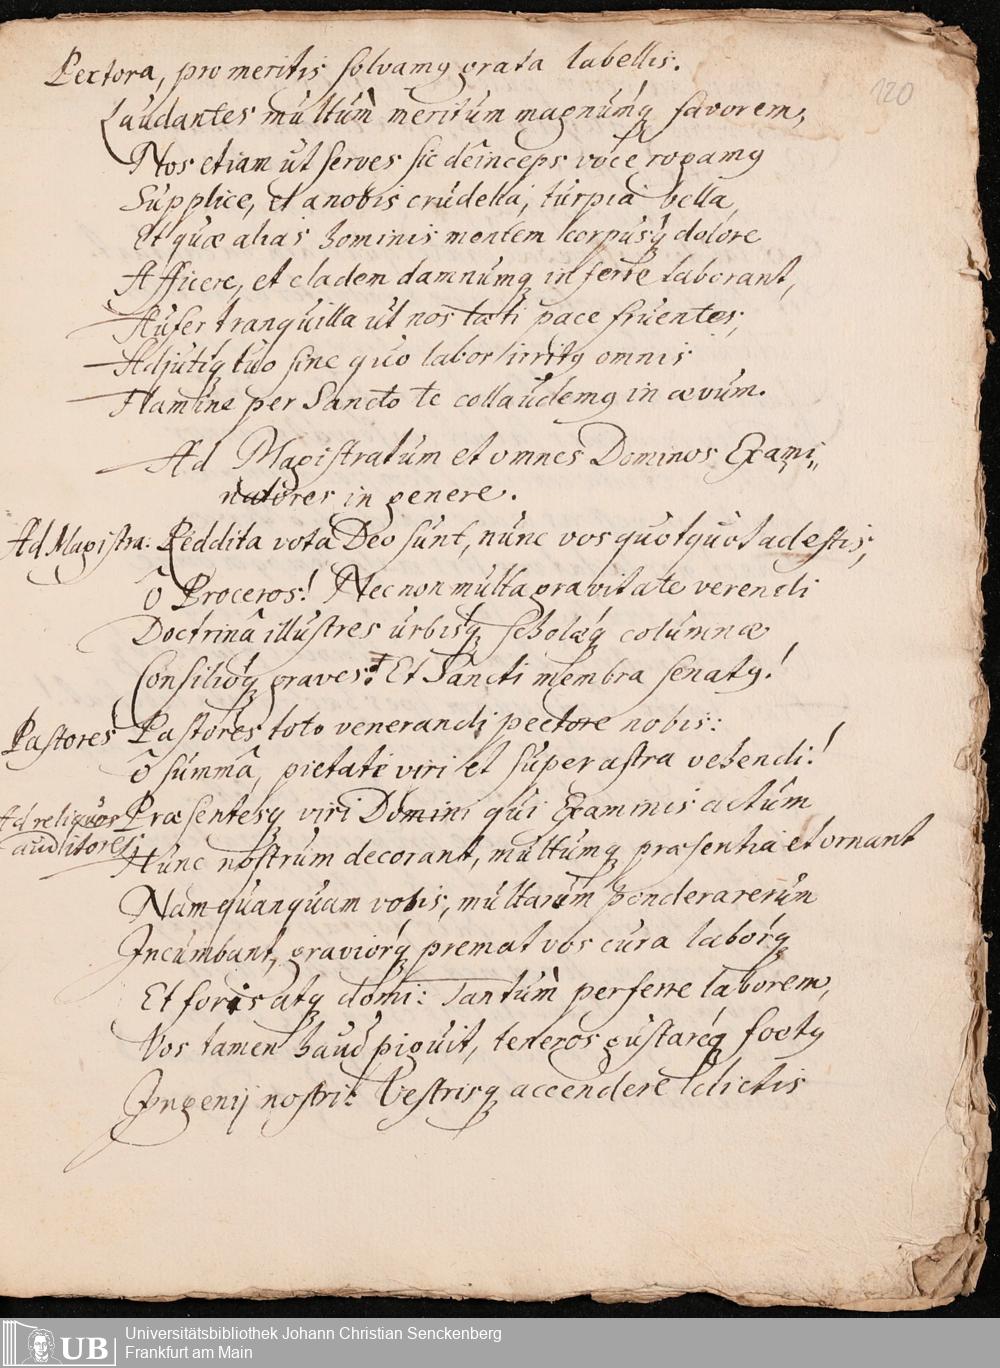 120
Pectora, pro meritis solvamꝰ grata labellis.
Laudantes multùm meritum magnúmq́ favorem,
Nos etiam ut serves sic deinceps voce rogamꝰ
Supplice, et a nobis crudelia, turpia bella,
Et quæ alias hominis mentem corpusq́ dolore
Afficere, et cladem damnumq inferre laborant,
Aufer tranquilla ut nos læti pace fruentes,
Adjutiq́ tuo sine quo labor irritꝰ omnis
Flamine per Sancto te collaudemꝰ in ævum.
Ad Magistratum et omnes Dominos Exami-
natores in genere.
Ad Magistra: Reddita vota Deo sunt, nunc vos quotquot adestis,
ô Proceros! Nec non multa gravitate verendi
Doctrinâ illustres urbisq́ scholæq́ columnæ
Consilióq́ graves! Et Sancti membra senatꝰ!
Pastores Pastores toto venerandi pectore nobis:
ô summâ, pietate viri et super astra vehendi!
Ad reliquos Præsentesq viri Domini qui Examinis actum
auditores: Hunc nostrum decorant, multumq præsentia et ornant
Nam quanquam vobis, multarum pondera rerum
Incumbant, graviórq́ premat vos cura labórq́
Et foris atq domi: Tantùm perferre laborem,
Vos tamen haud piguit, teneros gustaréq́ foetꝰ
Ingenij nostri: Vestrisq accendere dictis
UB
Universitätsbibliothek Johann Christian Senckenberg
Frankfurt am Main